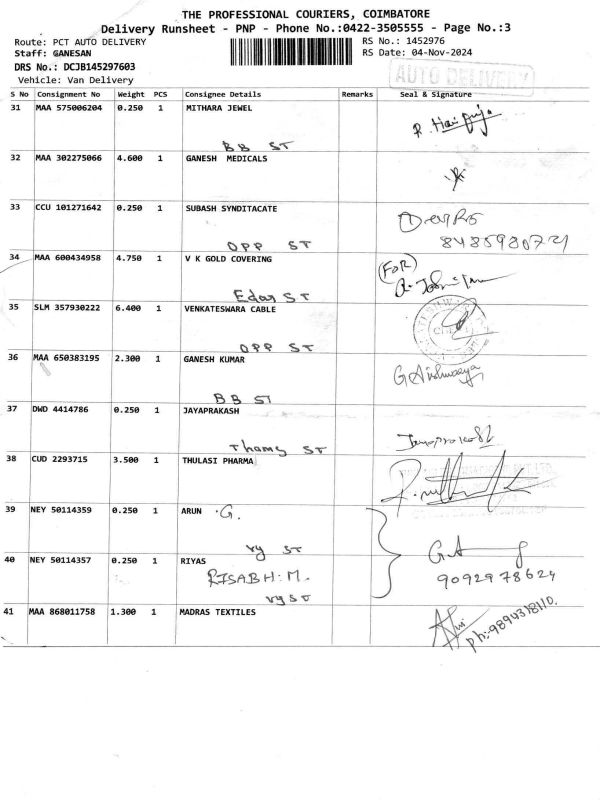 THE PROFESSIONAL COURIERS, COIMBATORE
Delivery Runsheet - PNP - Phone No.:0422-3505555 - Page No.:3
Route: PCT AUTO DELIVERY RS No.: 1452976
Staff: GANESAN RS Date: 04-Nov-2024
DRS No.: DCJB145297603
Vehicle: Van Delivery
AUTO DELIVERY
S No Consignment No Weight PCS Consignee Details Remarks Seal & Signature
31 MAA 575006204 0.250 1 MITHARA JEWEL
BB ST
32 MAA 302275066 4.600 1 GANESH MEDICALS
33 CCU 101271642 0.250 1 SUBASH SYNDITACATE
OPP ST 8485980721
34 MAA 600434958 4.750 1 V K GOLD COVERING (FOR)
Edar ST
35 SLM 357930222 6.400 1 VENKATESWARA CABLE
OPP ST
36 MAA 650383195 2.300 1 GANESH KUMAR G Aishwarya
BB ST
37 DWD 4414786 0.250 1 JAYAPRAKASH
Thoms ST
38 CUD 2293715 3.500 1 THULASI PHARMA
39 NEY 50114359 0.250 1 ARUN .G.
vy ST
40 NEY 50114357 0.250 1 RIYAS
RISABH.M. 9092978624
vy ST
41 MAA 868011758 1.300 1 MADRAS TEXTILES ph:9894318110.